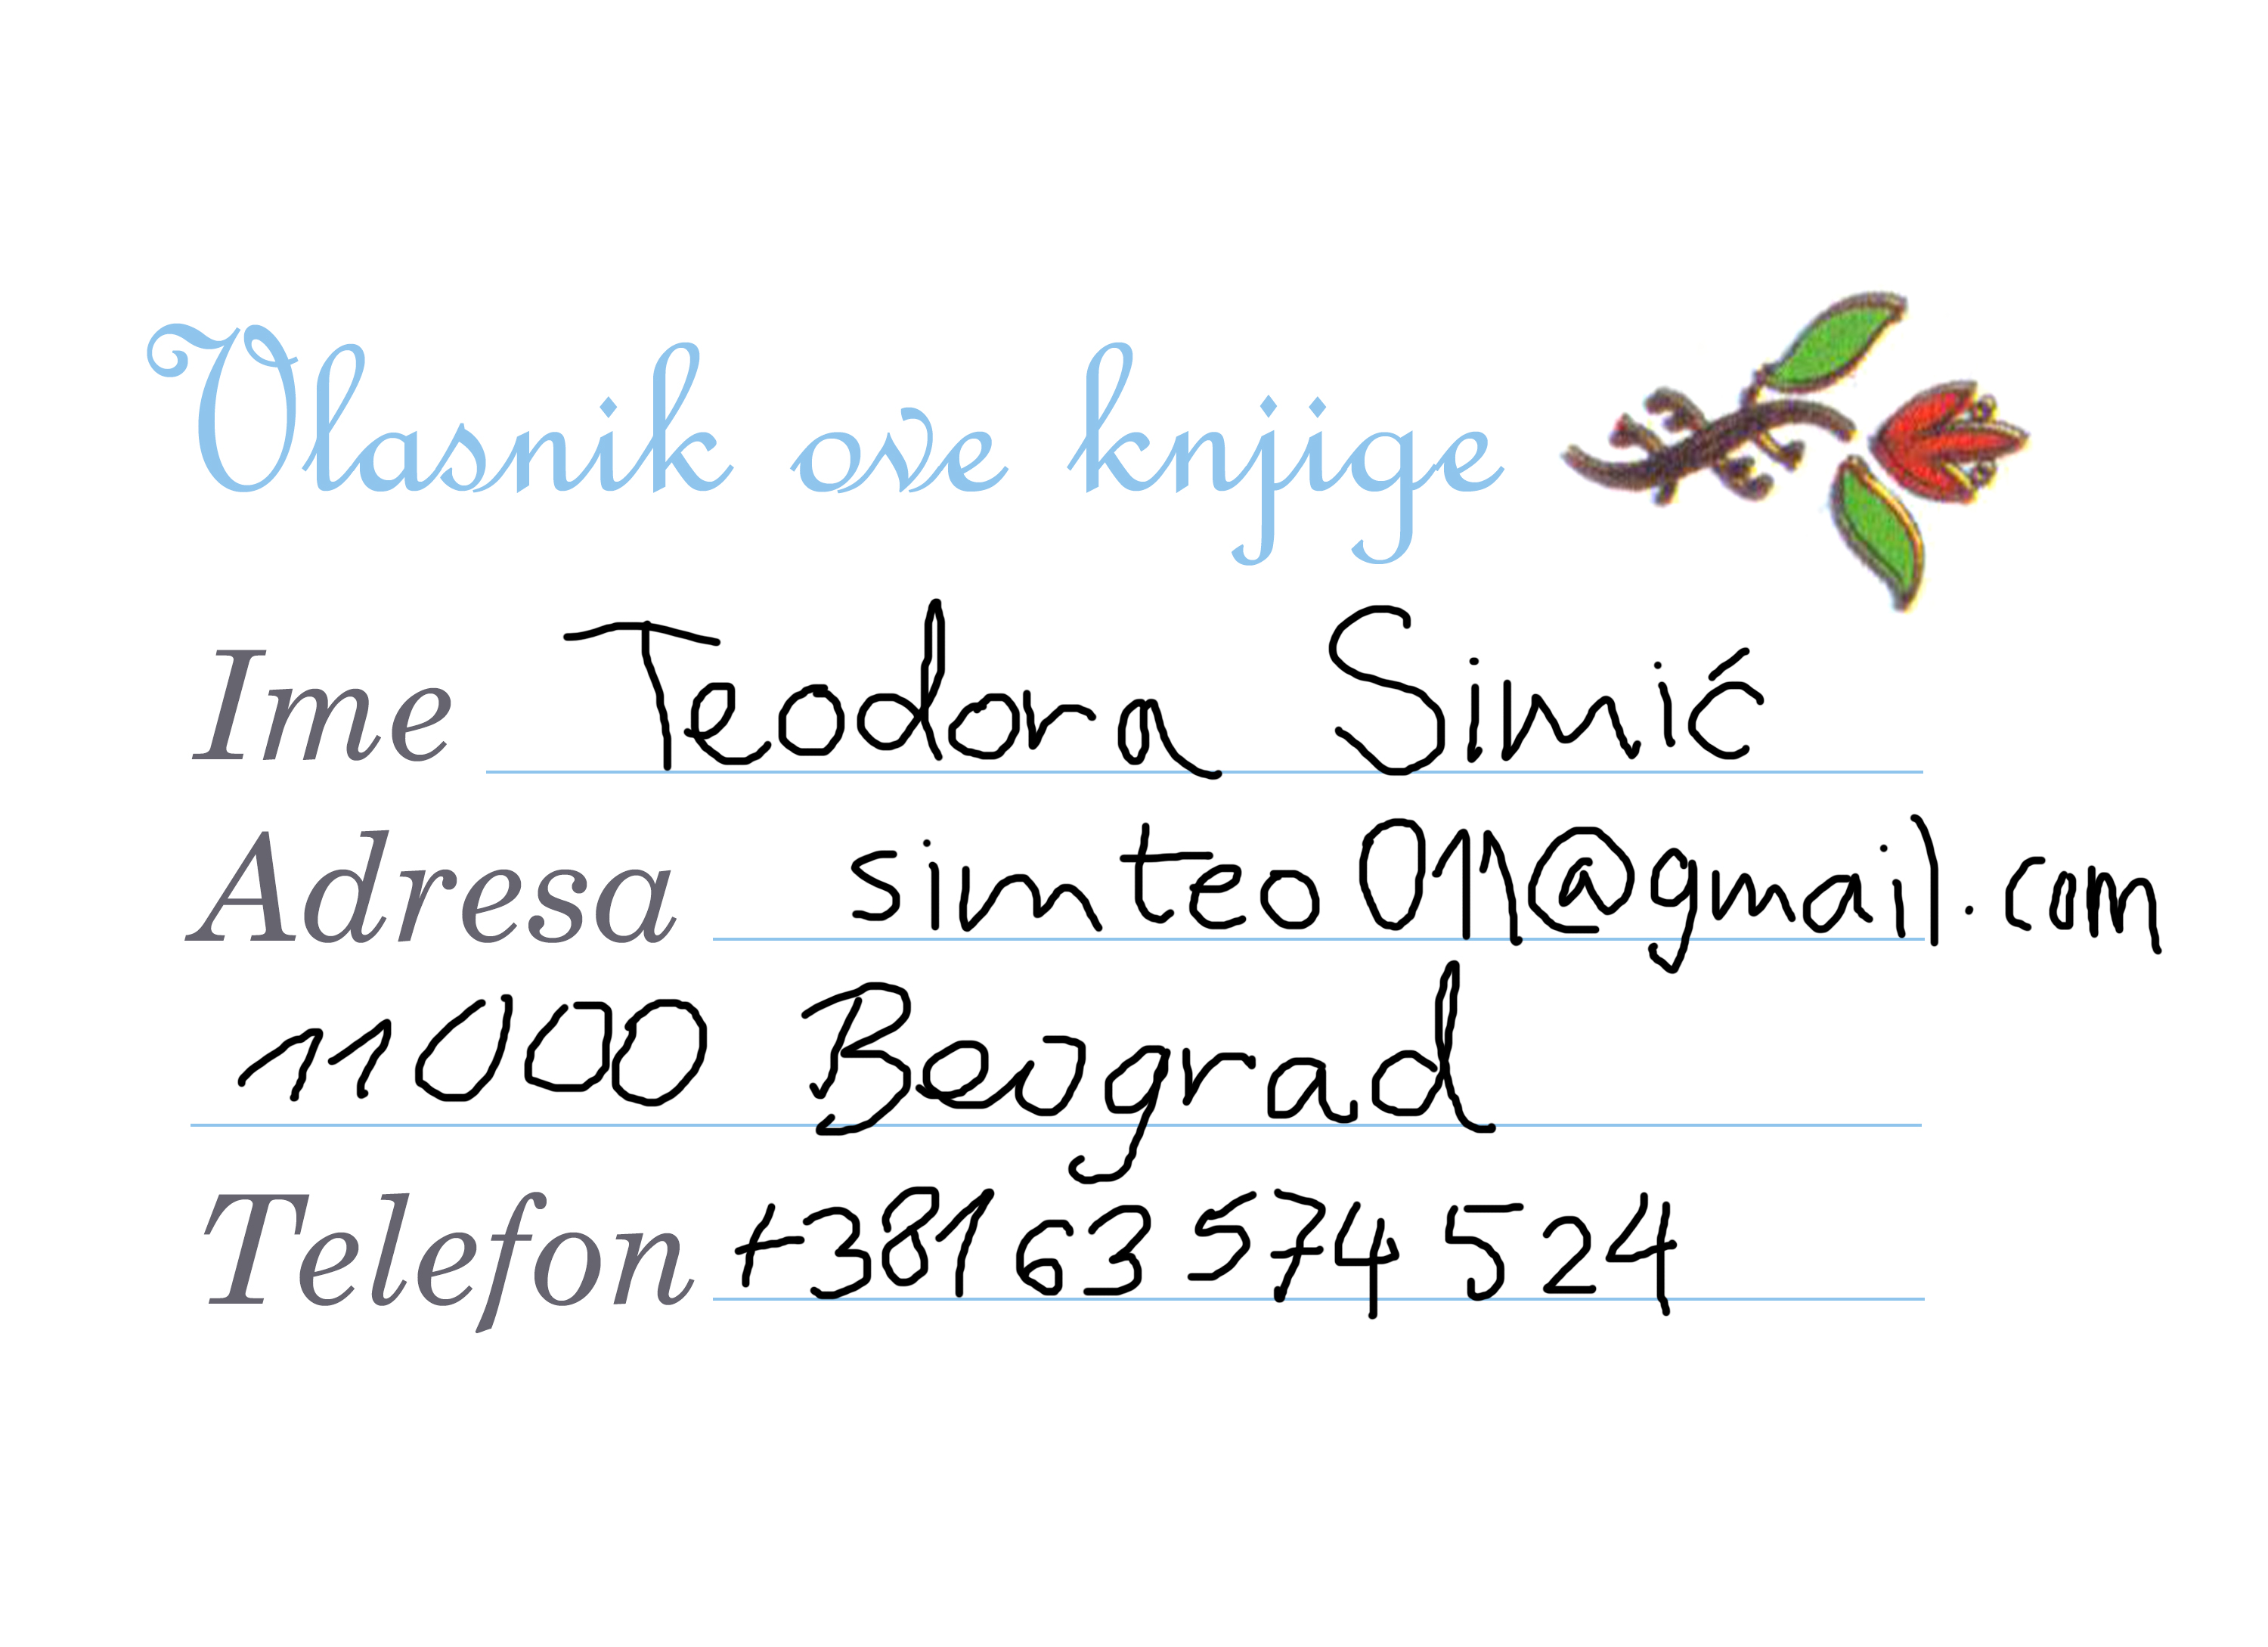 Vlasnik ove knjige
Ime Teodora Simić
Adresa simteo011@gmail.com
11000 Beograd
Telefon +381 63 574 524